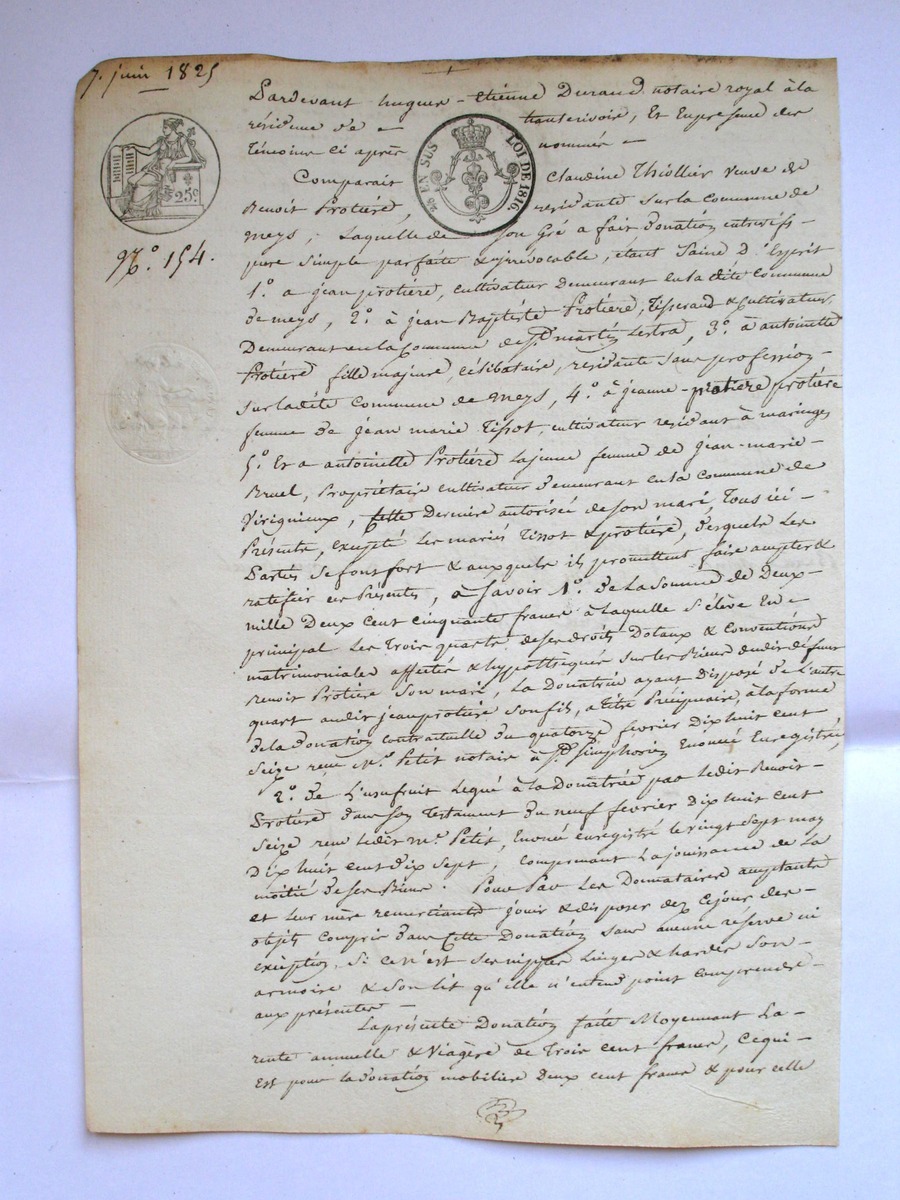 7. juin 1825
Pardevant hugues-Etienne Durand notaire royal à la
résidence de hauterivoire, Et En présence des
Témoins Ci après nommés
25 c.
25 EN SUS LOI DE 1816.
Comparait Claudine Thiollier veuve de
Benoit Protière, residante sur la commune de
meys, Laquelle de son Gré a fait donation entrevifs
pure simple parfaite & irrévocable, étant Saine D'Esprit
N.o 154.
1.o a jean protière, cultivateur Demeurant en la dite commune
de meys, 2.o à jean Baptiste Protière, Tisserand & cultivateur
Demeurant en la Commune de St martin Lestra, 3.o à antoinette
Protière fille majeure, célibataire, residante sans profession
sur la dite Commune de meys, 4.o à jeanne protière
femme de jean marie Tissot, cultivateur residant à maringes
5.o Et a antoinette Protière La jeune femme de jean-marie
Bruel, Propriétaire cultivateur demeurant en la Commune de
Virignieux, Cette Dernière autorisée de son mari, Tous ici
Présents, Excepté Les mariés Tissot & protière, desquels Les
Parties se font fort & auxquels ils promettent faire accepter &
ratifier ces Présentes, à Savoir 1.o de La somme de Deux
mille Deux cent cinquante francs à Laquelle s'élève En
principal Les Trois quarts de ses droits Dotaux & Conventions
matrimoniales affectés & hypothéqués sur les Biens dudit défunt
Benoit Protière Son mari, La Donatrice ayant disposé de L'autre
quart audit jean protière son fils, a titre Préciputaire, à la forme
de la donation contractuelle du quatorze fevrier Dix huit cent
seize reçu M.e Petit notaire à St Simphorien Enoncée Enregistrée,
2.o de L'usufruit Legué à la Donatrice par ledit Benoit
Protière dans son Testament du neuf fevrier Dix huit cent
seize reçu ledit m.e Petit, Enoncé enregistré le vingt sept may
Dix huit cent dix sept, Comprenant La jouissance de La
moitié de ses Biens. Pour Par Les Donnataires acceptants
et Leur mère remerciants jouir & disposer dez Ce jour des
objets Compris dans Cette Donation sans aucune réserve ni
exception, Si Ce n'est ses nippes Linges & hardes son
armoire & son lit qu'elle n'entend point comprendre
aux présentes
La présente Donation faite Moyennant La
rente annuelle & Viagère de Trois cent francs, Ce qui
Est pour la donation mobilière Deux cent francs & pour celle